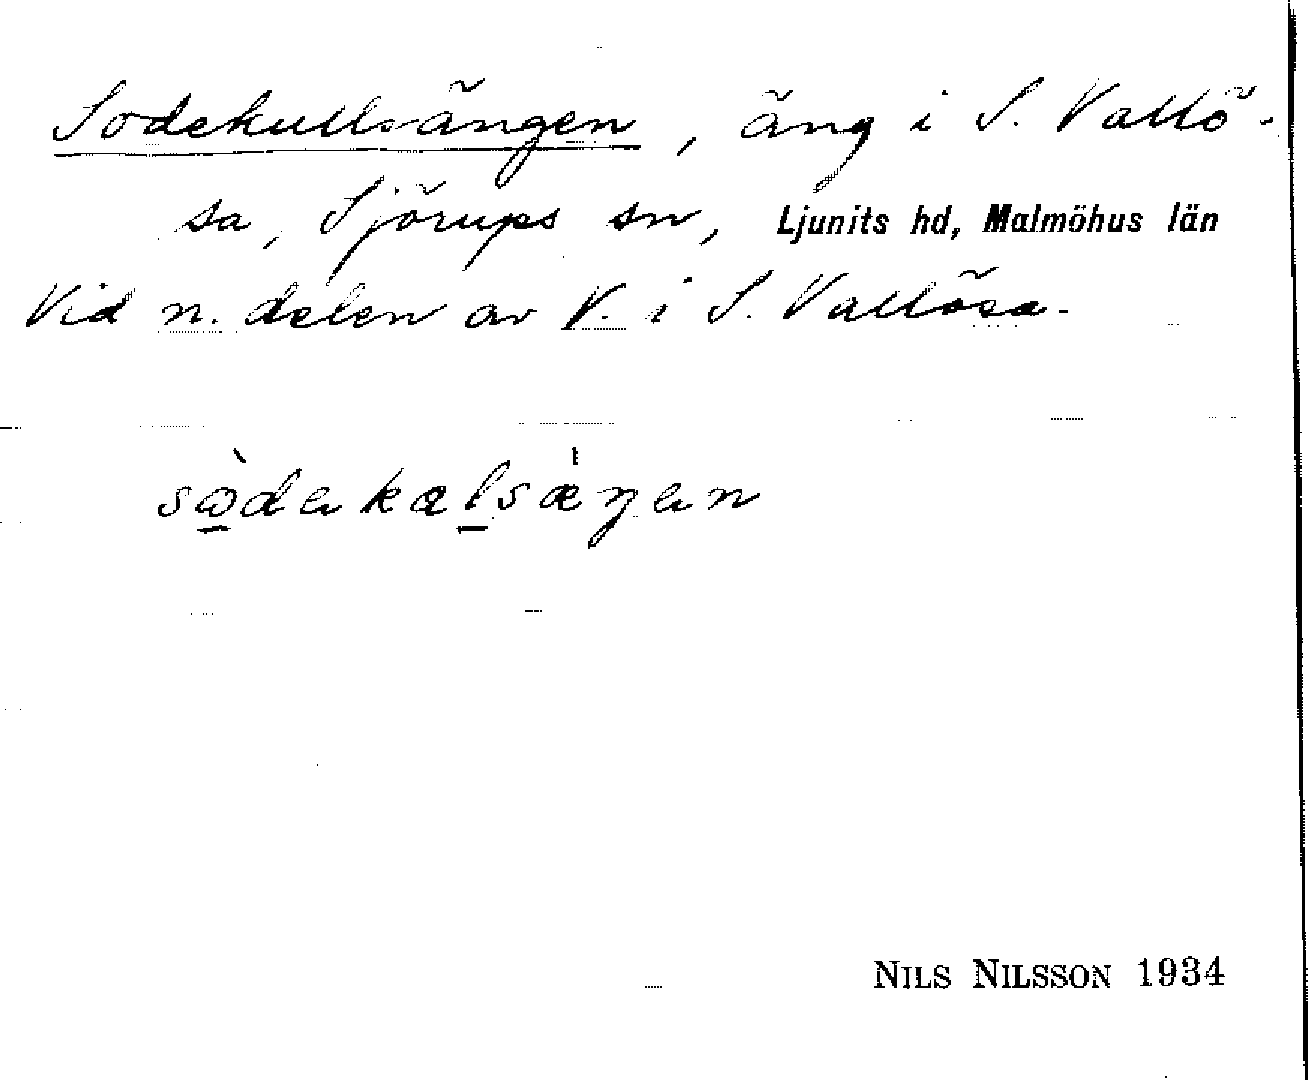 Sodekullsängen, äng i S. Vallö-
sa, Sjörups sn, Ljunits hd, Malmöhus län
Vid n. delen av V. i S. Vallösa.
NILS NILSSON 1934